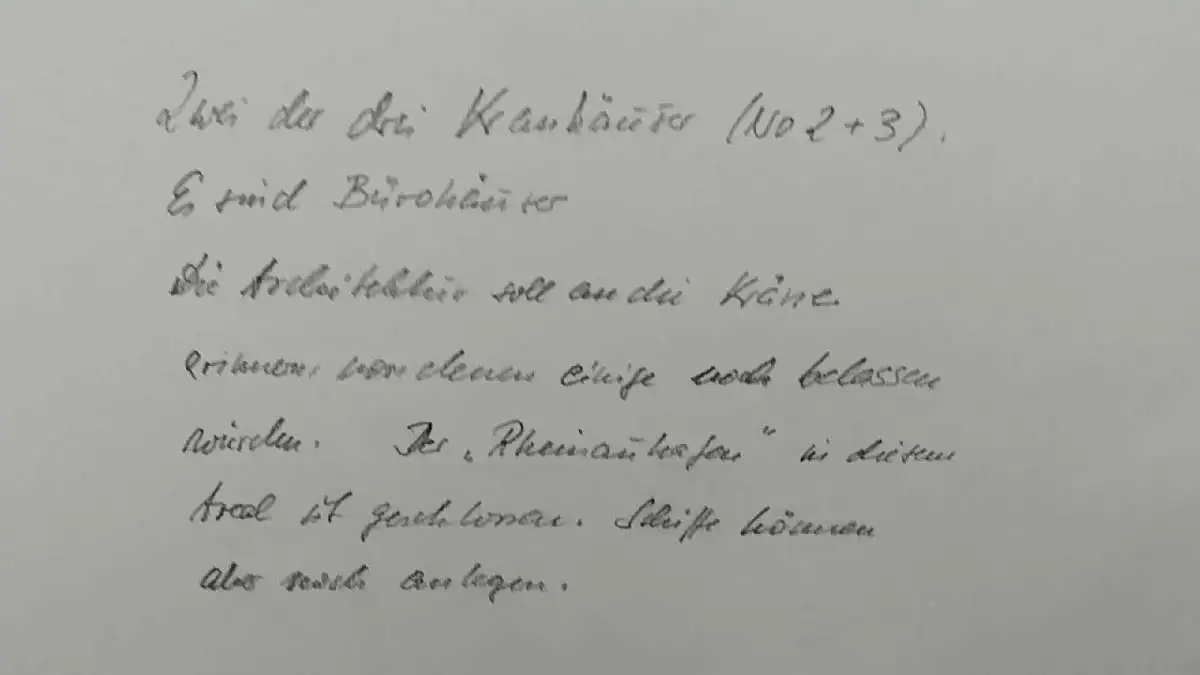 Zwei der drei Kranhäuser (No 2 + 3).
Es sind Bürohäuser
Die Architektur soll an die Kräne
erinnern, von denen einige noch belassen
wurden. Der „Rheinauhafen“ in diesem
Areal ist geschlossen. Schiffe können
aber noch anlegen.